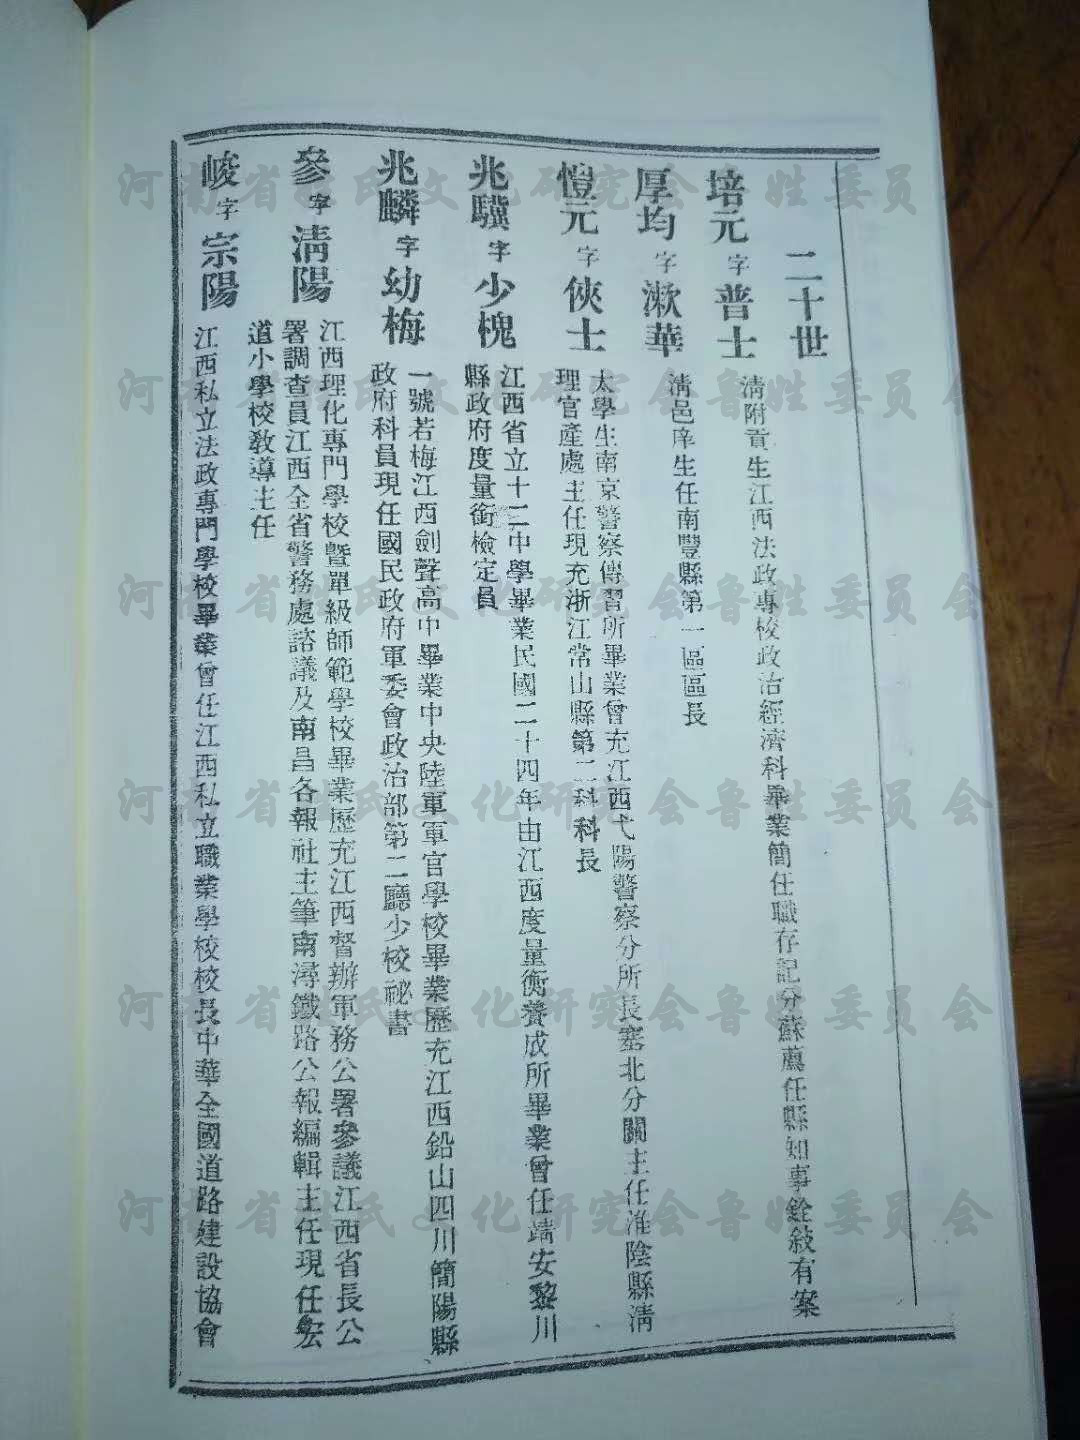 二十世
培元字普士
清附貢生江西法政專校政治經濟科畢業簡任職存記分蘇薦任縣知事銓敍有案
厚均字漱華
清邑庠生任南豐縣第一區區長
愷元字俠士
太學生南京警察傳習所畢業曾充江西弋陽警察分所長塞北分關主任淮陰縣清
理官產處主任現充浙江常山縣第二科科長
兆驥字少槐
江西省立十二中學畢業民國二十四年由江西度量衡養成所畢業曾任端安黎川
縣政府度量衡檢定員
兆麟字幼梅
一號若梅江西劍聲高中畢業中央陸軍軍官學校畢業歷充江西鉛山四川簡陽縣
政府科員現任國民政府軍委會政治部第二廳少校祕書
參字清陽
江西理化專門學校暨單級師範學校畢業歷充江西督辦軍務公署參議江西省長公
署調查員江西全省警務處諮議及南昌各報社主筆南潯鐵路公報編輯主任現任宏
道小學校教導主任
峻字宗陽
江西私立法政專門學校畢業曾任江西私立職業學校校長中華全國道路建設協會